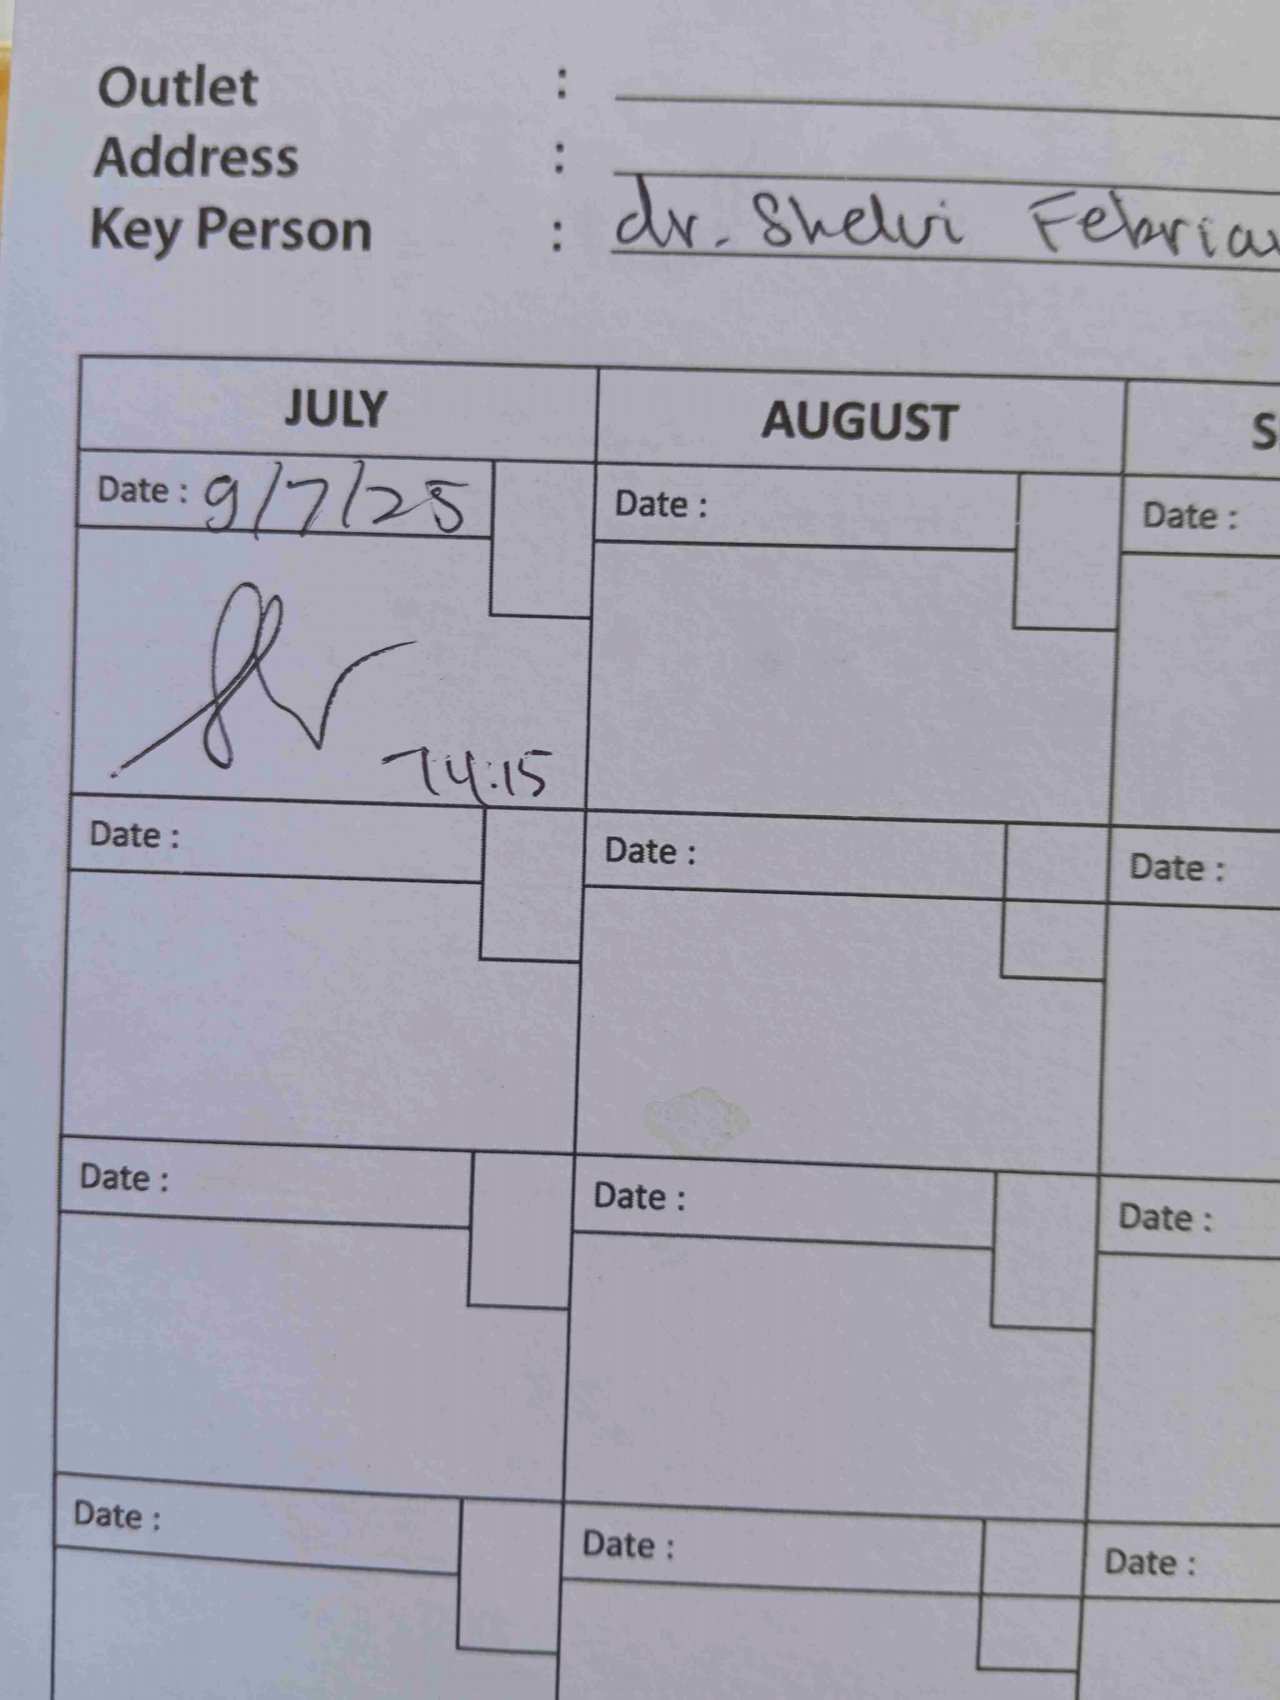 Outlet :
Address :
Key Person : dr. Shelvi
JULY AUGUST
Date : 9/7/25 Date : Date :
14:15
Date : Date : Date :
Date : Date : Date :
Date : Date : Date :